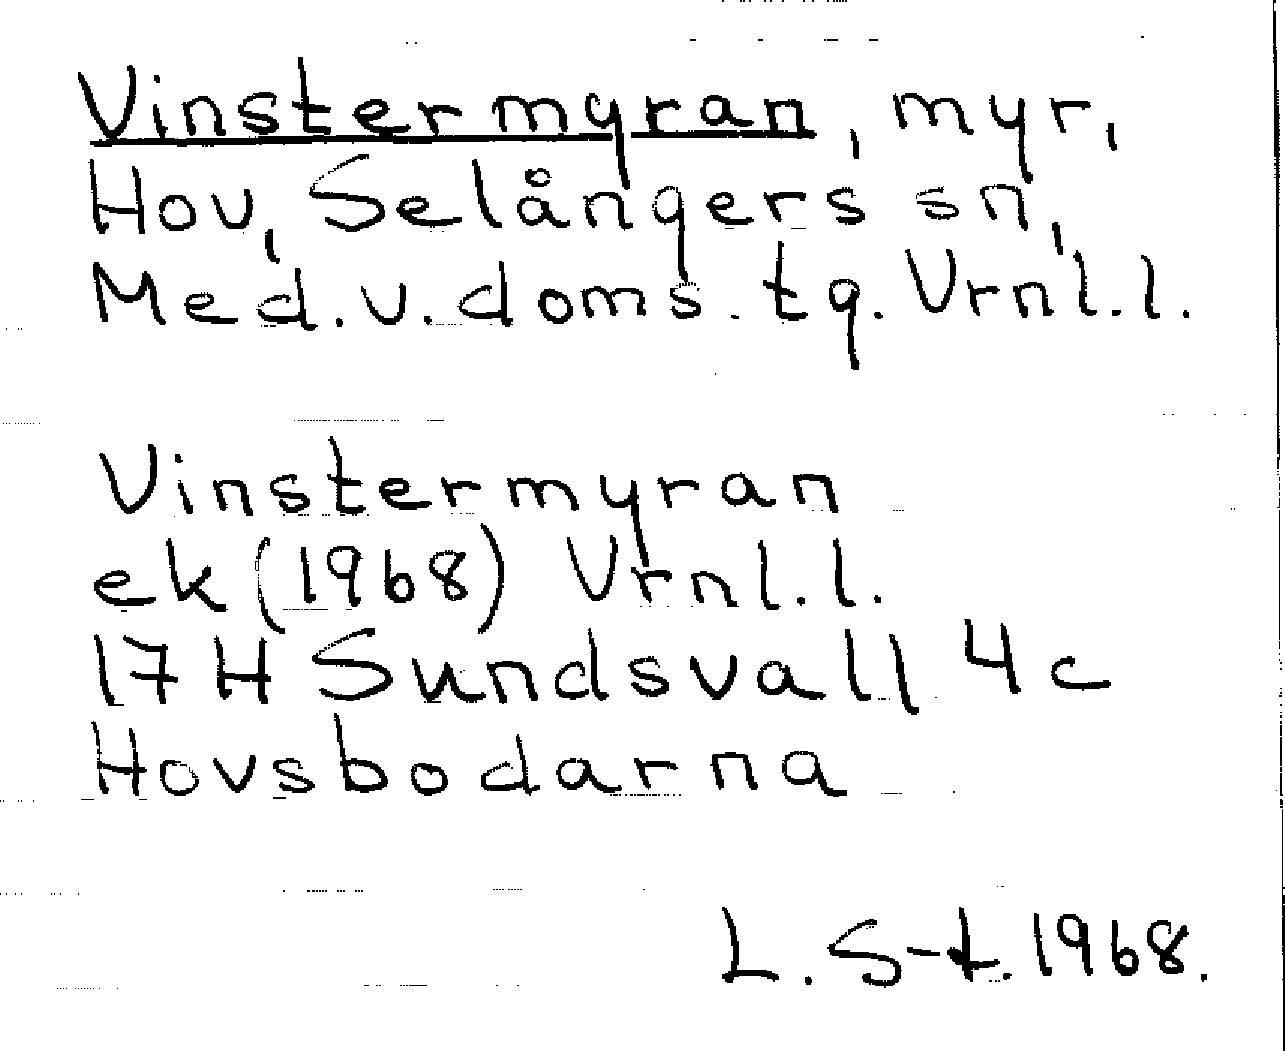 Vinstermyran, myr,
Hov, Selångers sn,
Med. v. doms. tg. Vrnl. l.
Vinstermyran
ek (1968) Vrnl. l.
17 H Sundsvall 4 c
Hovsbodarna
L. S-t. 1968.